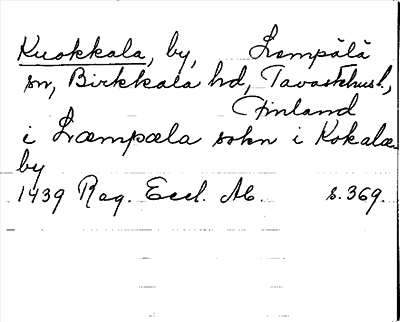 Kuokkala, by, Lempälä
sn, Birkkala hd, Tavastehusl.,
Finland
i Læmpæla sokn i Kokalæ
by
1439 Reg. Eccl. Ab. s. 369.